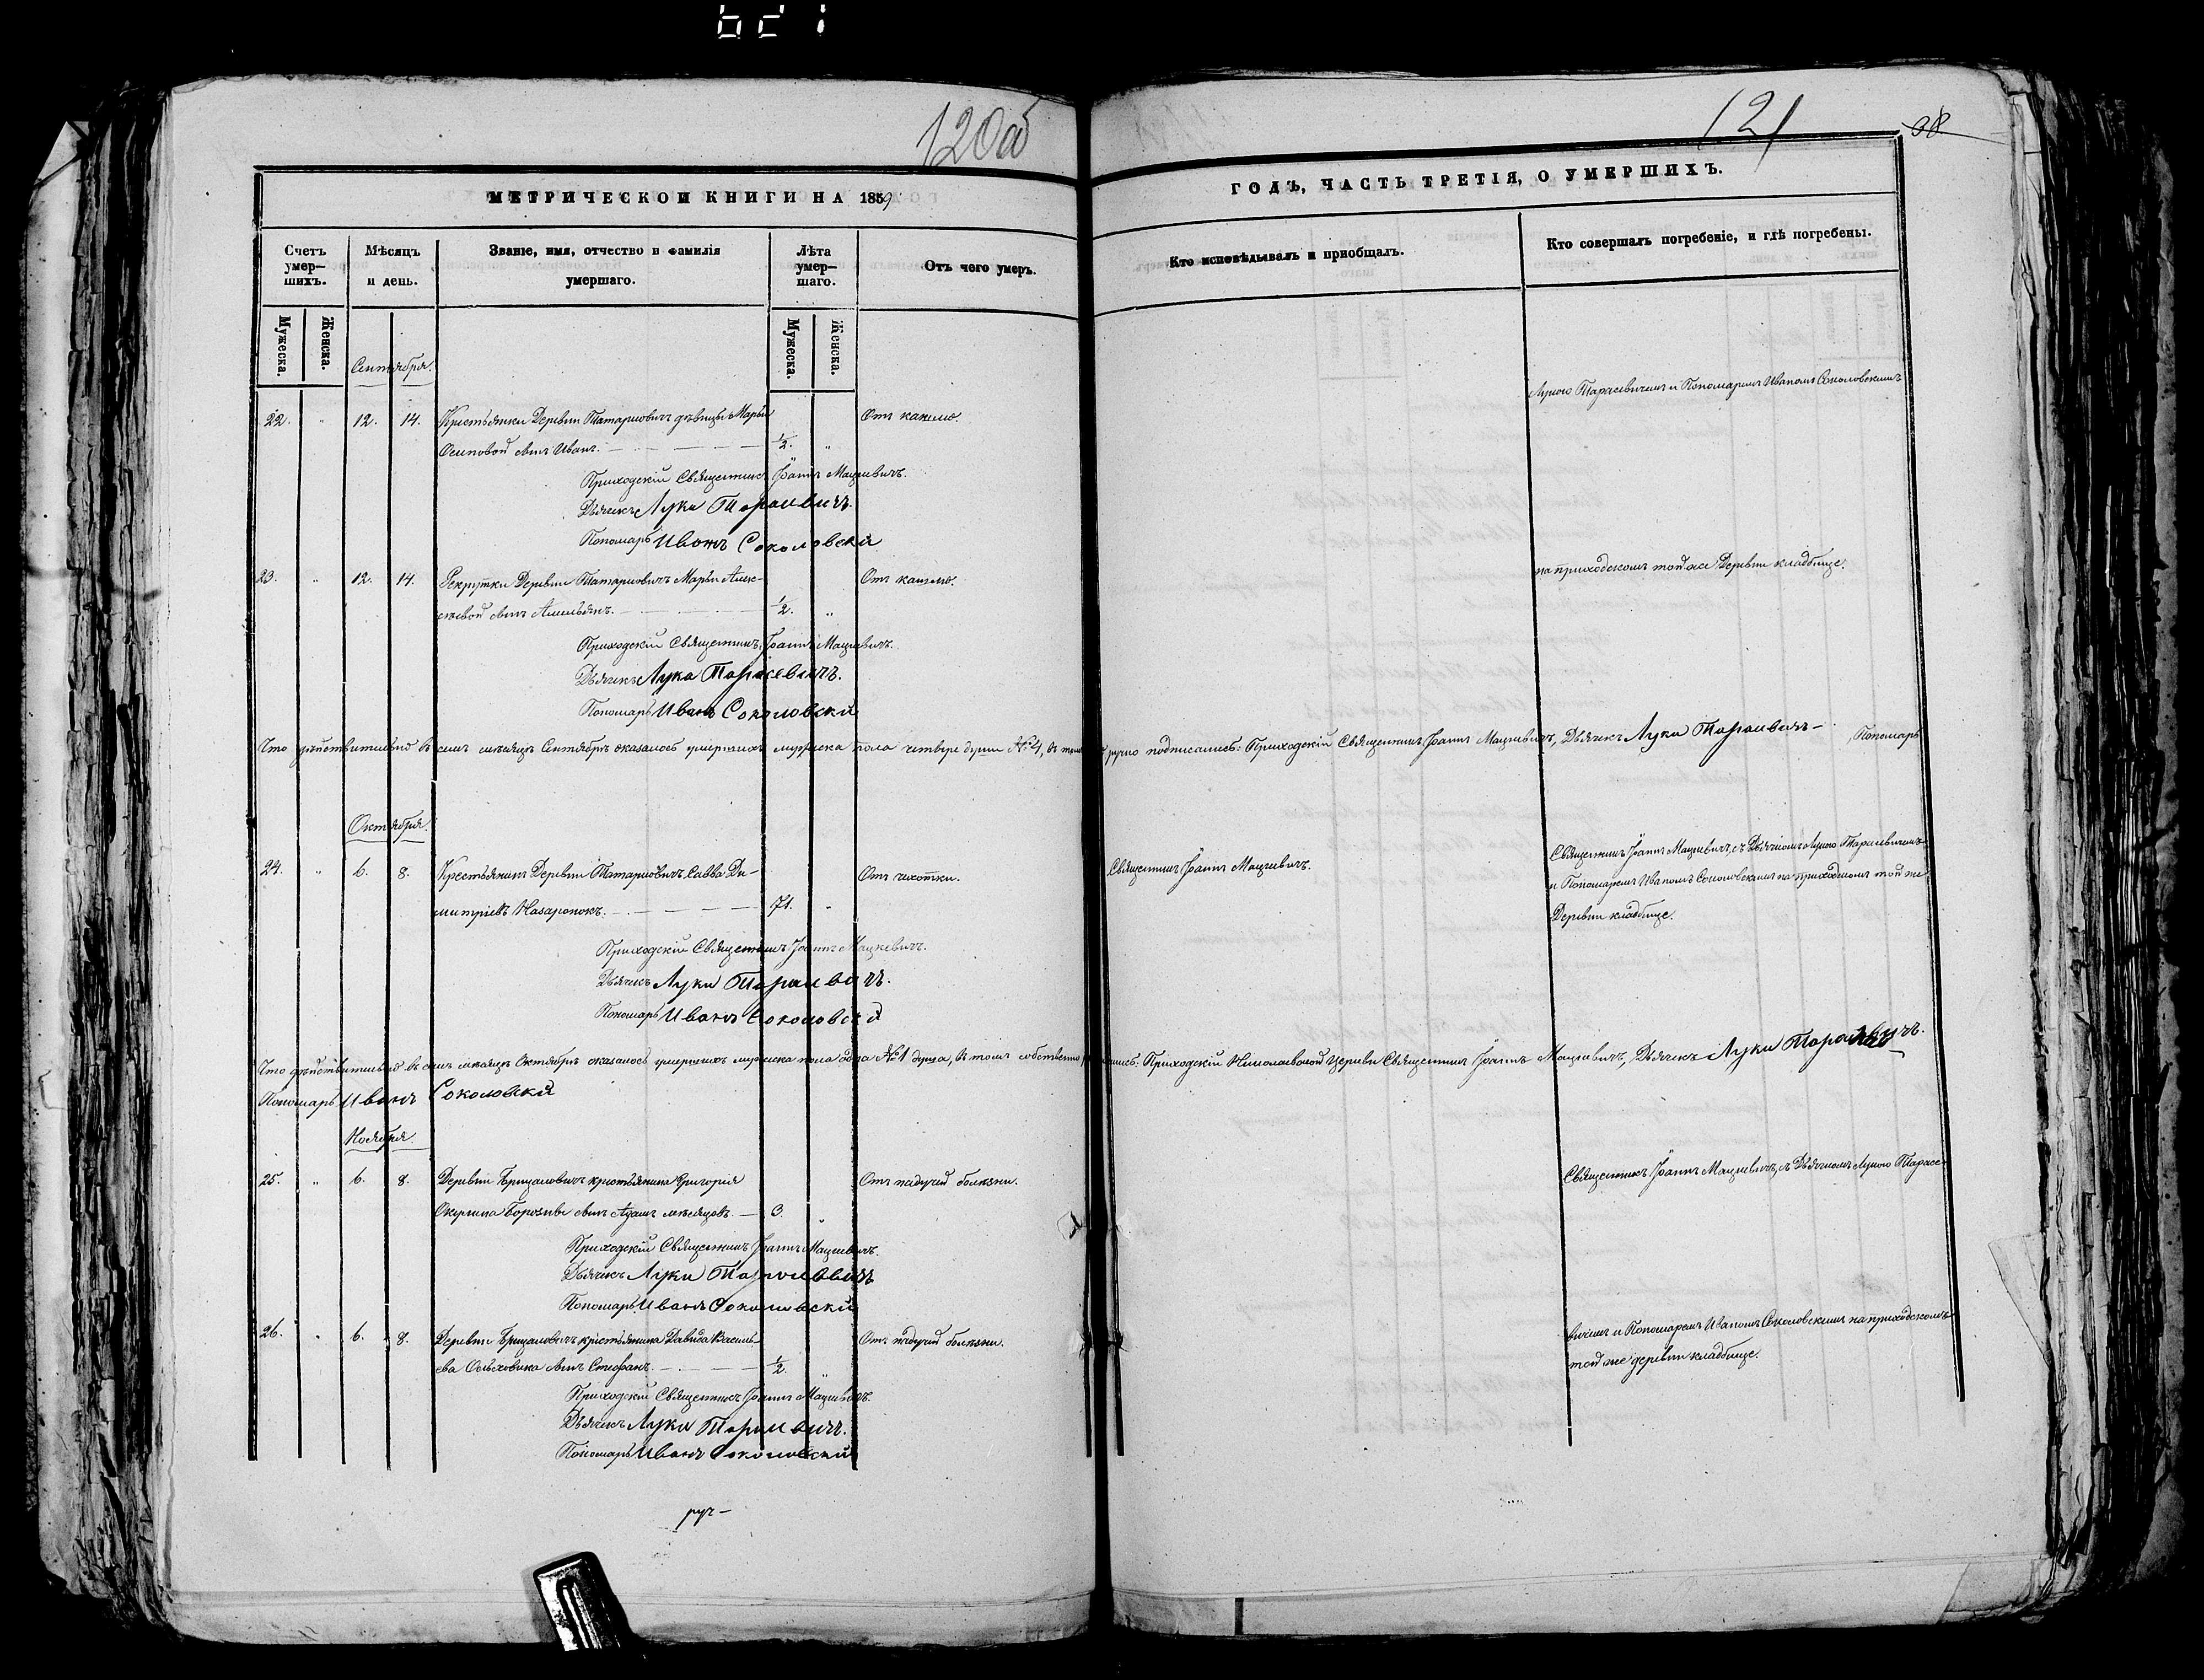 120об
121
38
МЕТРИЧЕСКОЙ КНИГИ НА 1859
ГОДЪ, ЧАСТЬ ТРЕТІЯ, О УМЕРШИХЪ.
Счетъ умер-шихъ.
Мѣсяцъ и день.
Званіе, имя, отчество и фамилія умершаго.
Лѣта умер-шаго.
Отъ чего умеръ.
Кто исповѣдывалъ и пріобщалъ.
Кто совершалъ погребеніе, и гдѣ погребены.
Мужеска. Женска.
Мужеска. Женска.
Сентября.
Лукою Тарасевичемъ и Пономаремъ Иваномъ Соколовскимъ
22. „ 12. 14. Крестьянки Деревни Татариовичъ дѣвицы Марьи Отъ кашлю.
Осиповой сынъ Иванъ. 1/2. „
Приходскій Священникъ Іоаннъ Мацкевичъ.
Дьячекъ Лука Тарасевичъ.
Пономарь Иванъ Соколовскій
на приходскомъ той же Деревни кладбищѣ.
23. „ 12. 14. Рекрутки Деревни Татариовичъ Марьи Алек- Отъ кашлю.
сѣевой сынъ Амельянъ. 1/2. „
Приходскій Священникъ Іоаннъ Мацкевичъ.
Дьячекъ Лука Тарасевичъ.
Пономарь Иванъ Соколовскій
Что дѣйствительно въ семъ мѣсяцѣ Сентябрѣ оказалось умершихъ мужеска пола четыре души № 4, въ томъ ручно подписались: Приходскій Священникъ Іоаннъ Мацкевичъ, Дьячекъ Лука Тарасевичъ – Пономарь
Октября.
24. „ 6. 8. Крестьянинъ Деревни Татариовичъ Савва Ди- Отъ чихотки. Священникъ Іоаннъ Мацкевичъ.
митріевъ Назаронокъ. 71. „
Священникъ Іоаннъ Мацкевичъ, съ Дьячкомъ Лукою Тарасевичемъ
и Пономаремъ Иваномъ Соколовскимъ на приходскомъ той же
Деревни кладбищѣ.
Приходскій Священникъ Іоаннъ Мацкевичъ.
Дьячекъ Лука Тарасевичъ.
Пономарь Иванъ Соколовскій
Что дѣйствительно въ семъ мѣсяцѣ Октябрѣ оказалось умершихъ мужеска пола одна № 1 душа, въ томъ собственно Приходскій Николаевской Церкви Священникъ Іоаннъ Мацкевичъ, Дьячекъ Лука Тарасевичъ.
Пономарь Иванъ Соколовскій
Ноября.
25. „ 6. 8. Деревни Брицаловичъ крестьянина Григорія Отъ падучей болѣзни.
сынъ Адамъ мѣсяцовъ 3. „
Священникъ Іоаннъ Мацкевичъ, съ Дьячкомъ Лукою Тарасе-
Приходскій Священникъ Іоаннъ Мацкевичъ.
Дьячекъ Лука Тарасевичъ
Пономарь Иванъ Соколовскій
26. „ 6. 8. Деревни Брицаловичъ крестьянина Давида Василь- Отъ падучей болѣзни.
ева сынъ Стефанъ. 1/2. „
вичемъ и Пономаремъ Иваномъ Соколовскимъ на приходскомъ
той же деревни кладбищѣ.
Приходскій Священникъ Іоаннъ Мацкевичъ.
Дьячекъ Лука Тарасевичъ.
Пономарь Иванъ Соколовскій
руч–